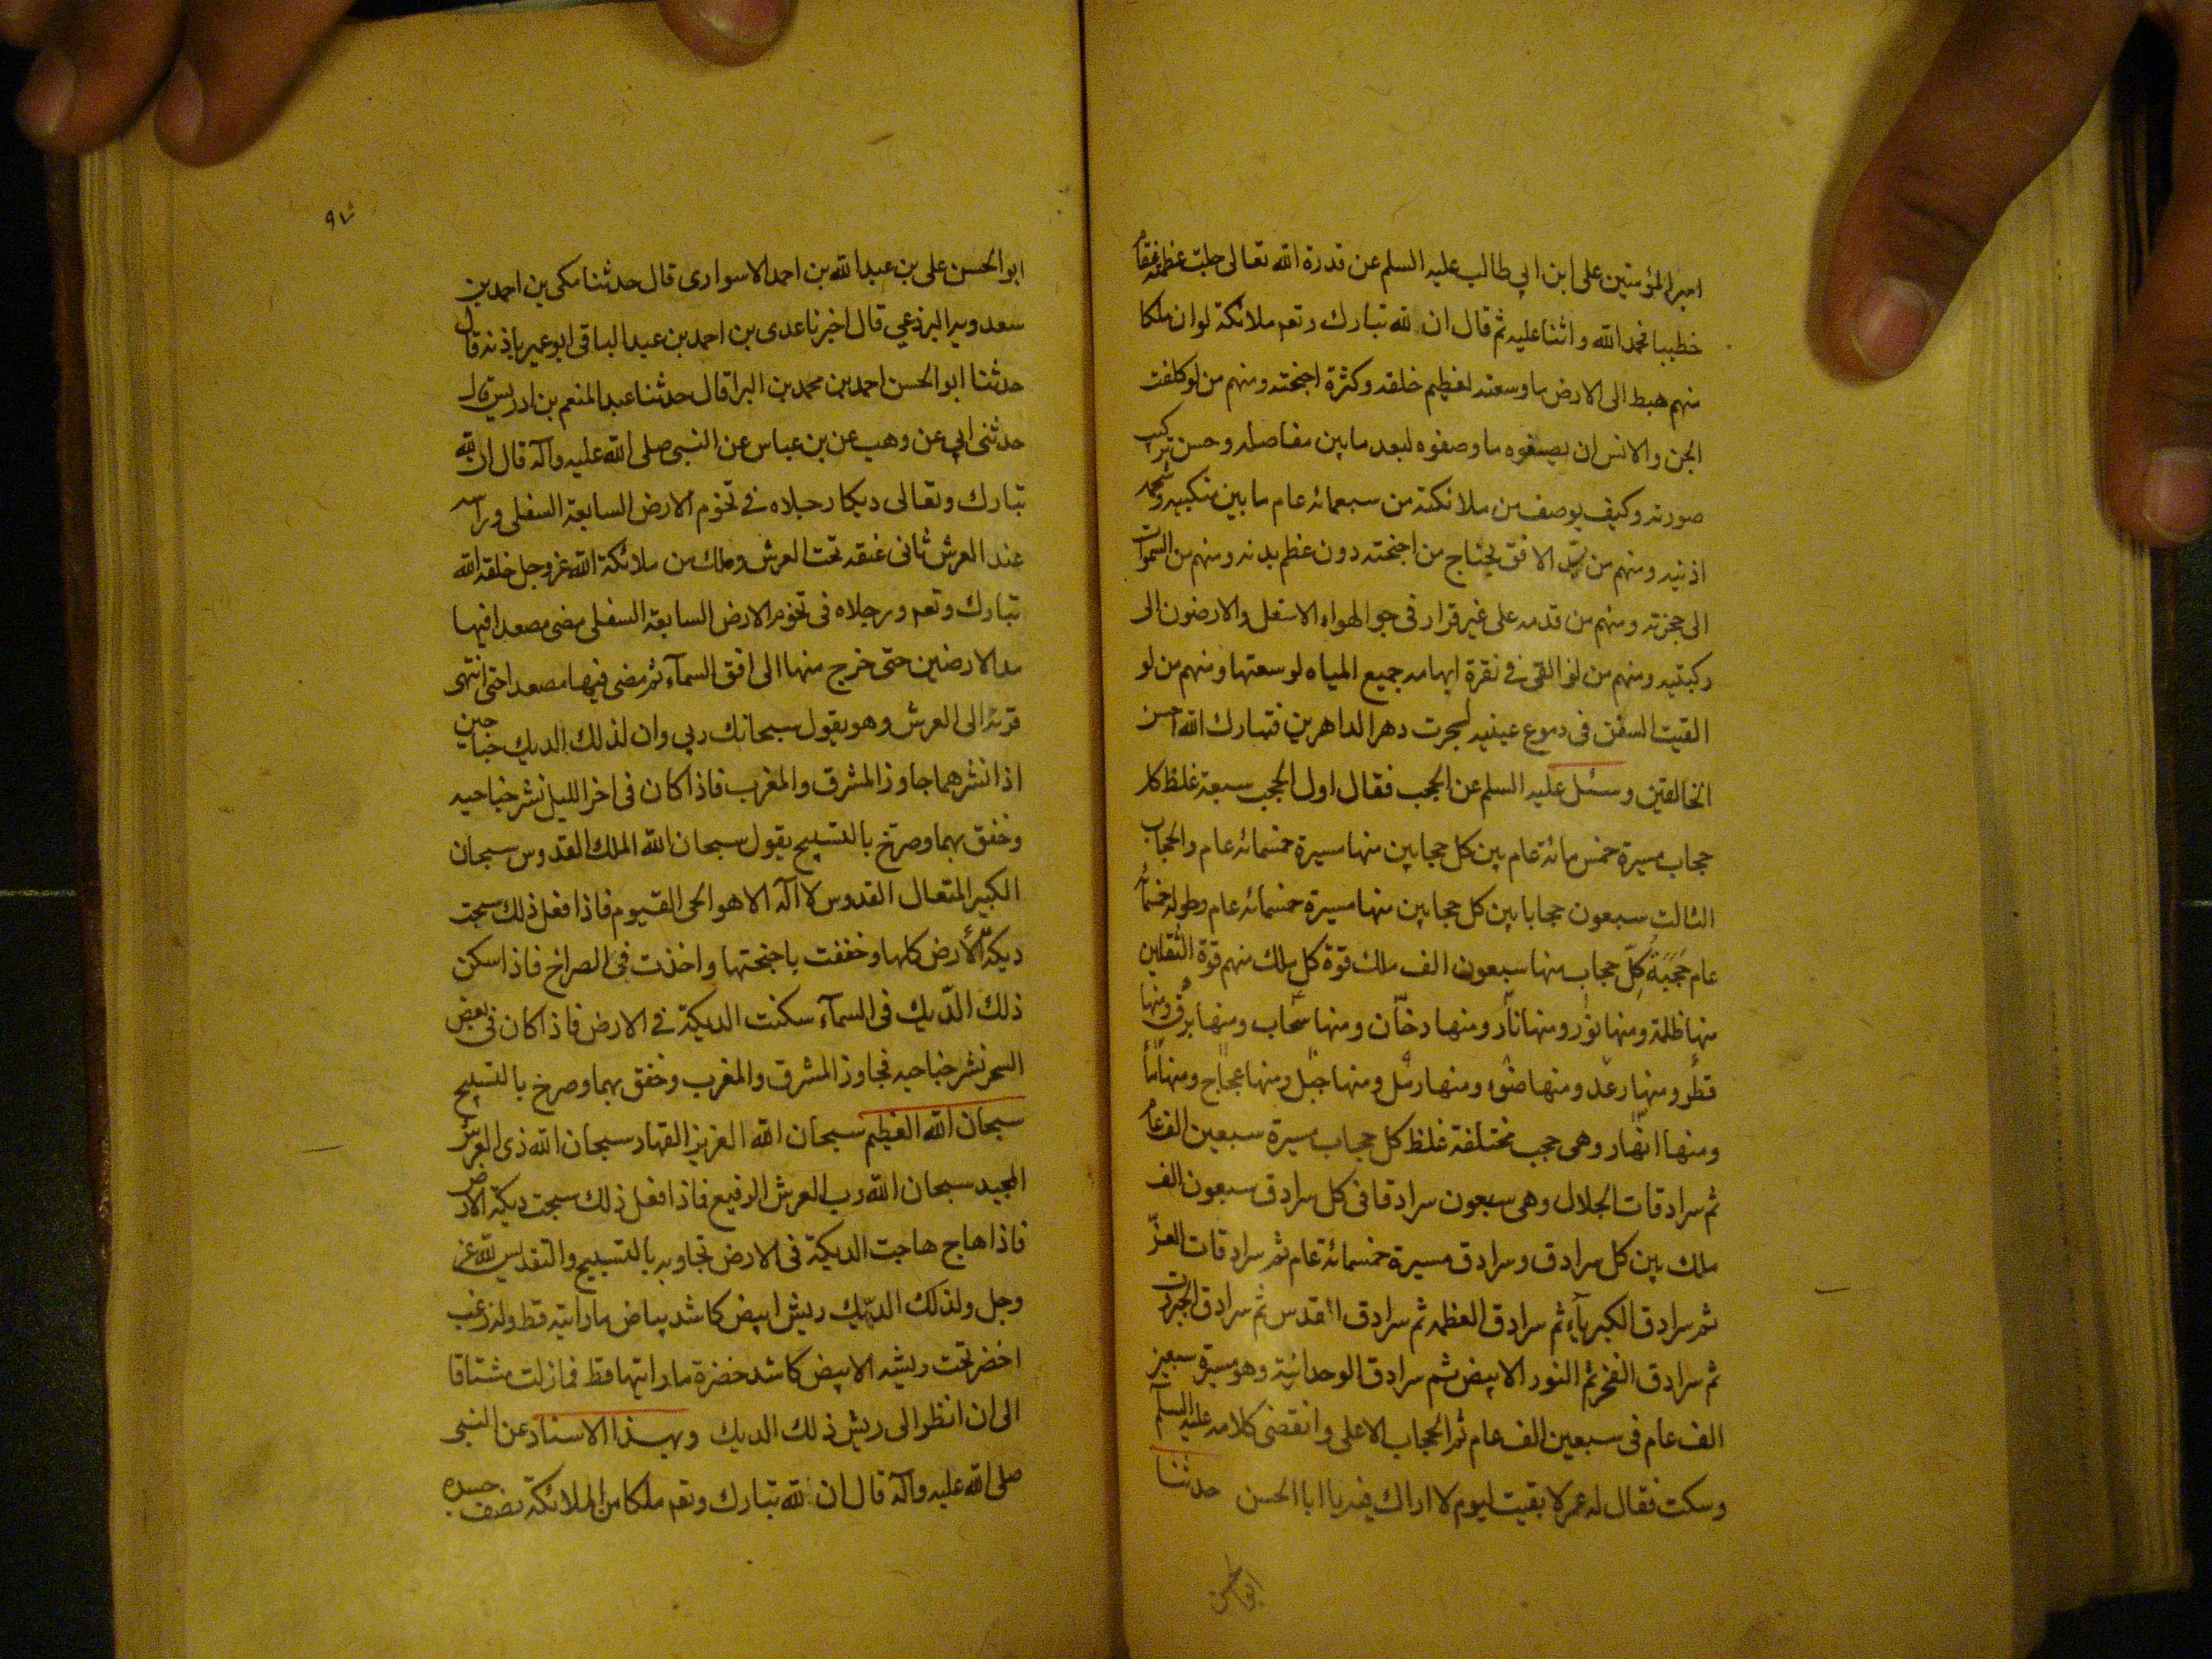 امير المؤمنين على ابن ابي طالب عليه السلم عن قدرة الله تعالى جلت عظمته فقام
خطيبا فحمد الله واثنا عليه ثم قال ان لله تبارك وتعم ملائكة لو ان ملكا
منهم هبط الى الارض ما وسعته لعظيم خلقه وكثرة اجنحته ومنهم من لو كلفت
الجن والانس ان يصفوه ما وصفوه لبعد ما بين مفاصله وحسن تركيب
صورته وكيف يوصف من ملائكته من سبعمائه عام ما بين منكبيه وشحمه
اذنيه ومنهم من يسد الافق بجناح من اجنحته دون عظم بدنه ومنهم من السموات
الى حجزته ومنهم من قدمه على غير قرار فى جو الهواء الاسفل والارضون الى
ركبتيه ومنهم من لو القى فى نقرة ابهامه جميع المياه لوسعتها ومنهم من لو
القيت السفن فى دموع عينيه لجرت دهر الداهرين فتبارك الله احسن
الخالقين وسئل عليه السلم عن الحجب فقال اول الحجب سبعة غلظ كل
حجاب مسيرة خمس مائة عام بين كل حجابين منها مسيرة خمسمائه عام والحجاب
الثالث سبعون حجابا بين كل حجابين منها مسيرة خمسمائه عام وطوله خمسمائه
عام حَجَبَة كلّ حجاب منها سبعون الف ملك قوة كل ملك منهم قوة الثقلين
منها ظلمة ومنها نور ومنها نار ومنها دخان ومنها سحاب ومنها برق ومنها
قطر ومنها رعد ومنها ضوء ومنها رمل ومنها جبل ومنها عجاج ومنها ماأ
ومنها انهار وهى حجب مختلفة غلظ كل حجاب مسيرة سبعين الف عام
ثم سرادقات الجلال وهى سبعون سرادقا فى كل سرادق سبعون الف
ملك بين كل سرادق وسرادق مسيرة خمسمائة عام ثم سرادقات العزّ
ثم سرادق الكبرياء ثم سرادق العظمه ثم سرادق القدس ثم سرادق الجبروت
ثم سرادق الفخر ثم النور الابيض ثم سرادق الوحدانية وهو مسيرة سبعين
الف عام فى سبعين الف عام ثم الحجاب الاعلى وانقضى كلامه عليه السلم
وسكت فقال له عمر لا بقيت ليوم لا اراك فيه يا ابا الحسن حدثنا
ابو الحسن
٩٧
ابو الحسن على بن عبد الله بن احمد الاسوارى قال حدثنا مكى بن احمد بن
سعدويه البرذعي قال اخبرنا عدى بن احمد بن عبد الباقى ابو عمير باذنه قال
حدثنا ابو الحسن احمد بن محمد بن البرا قال حدثنا عبد المنعم بن ادريس قال
حدثنى ابي عن وهب عن بن عباس عن النبى صلى الله عليه وآله قال ان لله
تبارك وتعالى ديكا رجلاه فى تخوم الارض السابعة السفلى وراسه
عند العرش ثانى عنقه تحت العرش وملك من ملائكة الله عز وجل خلقه الله
تبارك وتعم ورجلاه فى تخوم الارض السابعة السفلى مضى مصعدا فيها
مد الارضين حتى خرج منها الى افق السمآء ثم مضى فيها مصعدا حتى انتهى
قرنه الى العرش وهو يقول سبحانك ربي وان لذلك الديك جناحين
اذا نشرهما جاوز المشرق والمغرب فاذا كان فى اخر الليل نشر جناحيه
وخفق بهما وصرخ بالتسبيح يقول سبحان الله الملك القدوس سبحان
الكبير المتعال القدوس لا اله الا هو الحى القيوم فاذا فعل ذلك سبحت
ديكة الأرض كلها وخفقت باجنحتها واخذت فى الصراخ فاذا سكن
ذلك الدّيك فى السمآء سكنت الديكة فى الارض فاذا كان فى بعض
السحر نشر جناحيه فجاوز المشرق والمغرب وخفق بهما وصرخ بالتسبيح
سبحان الله العظيم سبحان الله العزيز القهار سبحان الله ذى العرش
المجيد سبحان الله رب العرش الرفيع فاذا فعل ذلك سبحت ديكة الارض
فاذا هاج هاجت الديكة فى الارض تجاوبه بالتسبيح والتقديس لله عز
وجل ولذلك الديّك ريش ابيض كاشد بياض ما رايته قط وله زغب
اخضر تحت ريشه الابيض كاشد خضرة ما رايتها قط فما زلت مشتاقا
الى ان انظر الى ريش ذلك الديك وبهذا الاسناد عن النبى
صلى الله عليه وآله قال ان لله تبارك وتعم ملكا من الملائكة نصف جسده